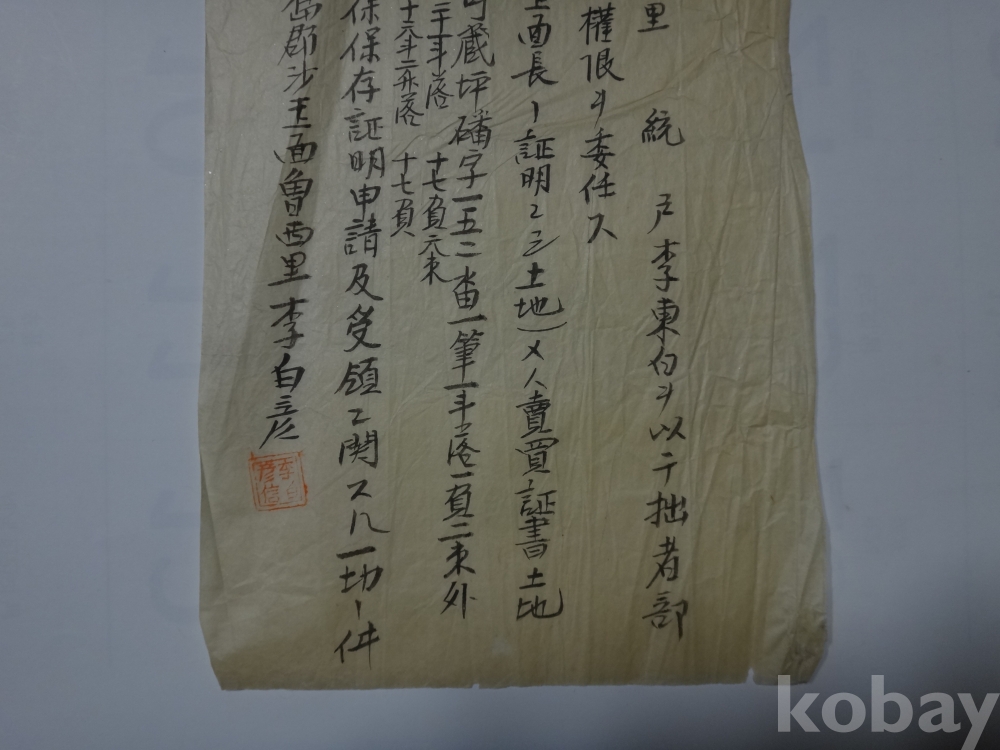 里 統 戸李東白ヲ以テ拙者部
權限ヲ委任ス
面長ノ証明ニ三土地)メ人賣買証書土地
坪磻字一五二畨一筆一斗落一負二束外
二斗落 十七負元束
十六斗二升落 十七負
保保存証明申請及受領ニ関スル一切ノ件
郡沙王面魯西里李白彦
kobay